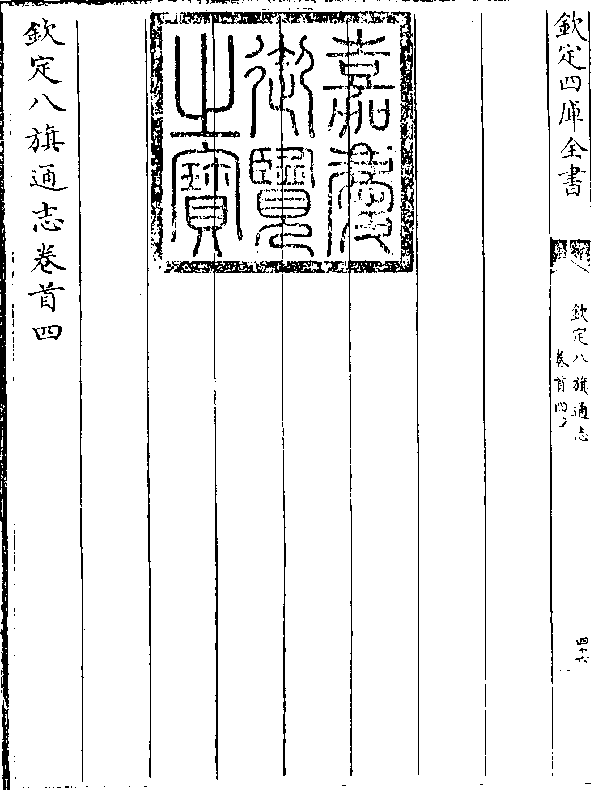 欽定四庫全書
欽定八旗通志
卷首四
四十六
嘉慶
御覽
之寶
欽定八旗通志卷首四